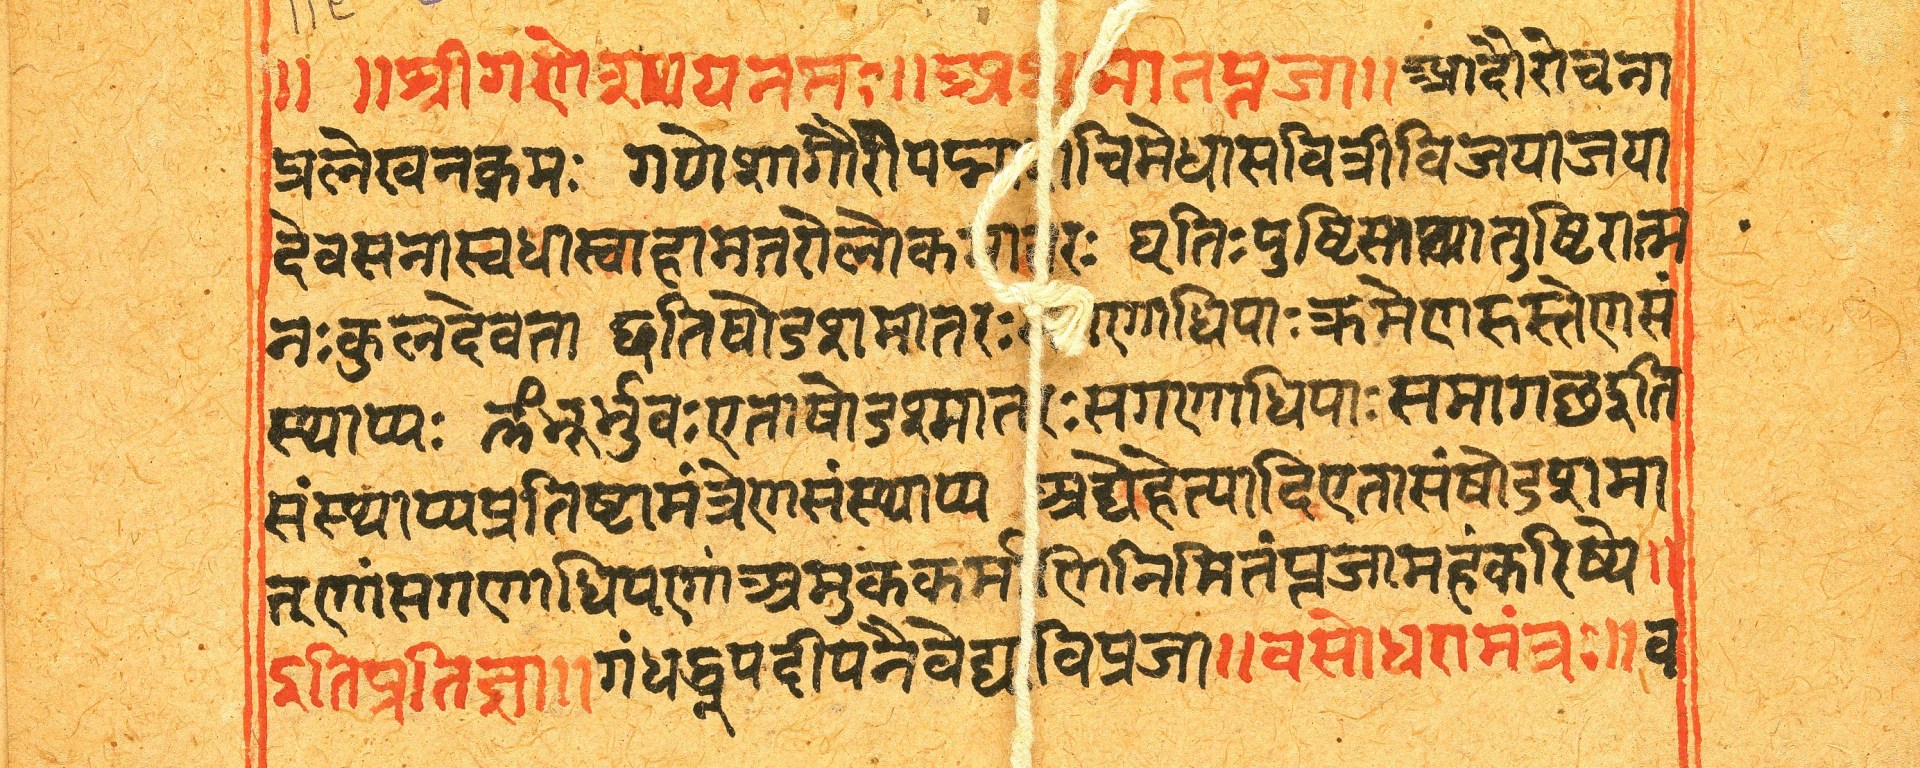 ॥ ॥श्रीगणेशायनमः॥अथमातपूजा॥आदौरोचना
प्रलेखनक्रमः गणेशागौरीपद्मा चिमेधासवित्रीविजयाजया
देवसनास्वधास्वाहामतरोलोक धृतिःपुष्टिस्तथातुष्टिरात्म
नःकुलदेवता इतिषोडशमातरः णाधिपाःक्रमेणहस्तेणसं
स्थाप्यः ॐभूर्भुवःएताषोडश्मातरःसगणाधिपाःसमागछइति
संस्थाप्यप्रतिष्टामंत्रेणसंस्थाप्य अद्येहेत्यादिएतासंषोडशमा
तृणांसगणाधिपणांअमुककर्माणिनिमितंपूजामहंकरिष्ये॥
इतिप्रतिज्ञा॥गंधधूपदीपनैवेद्य विप्रजा॥वसोधरामंत्रः॥व